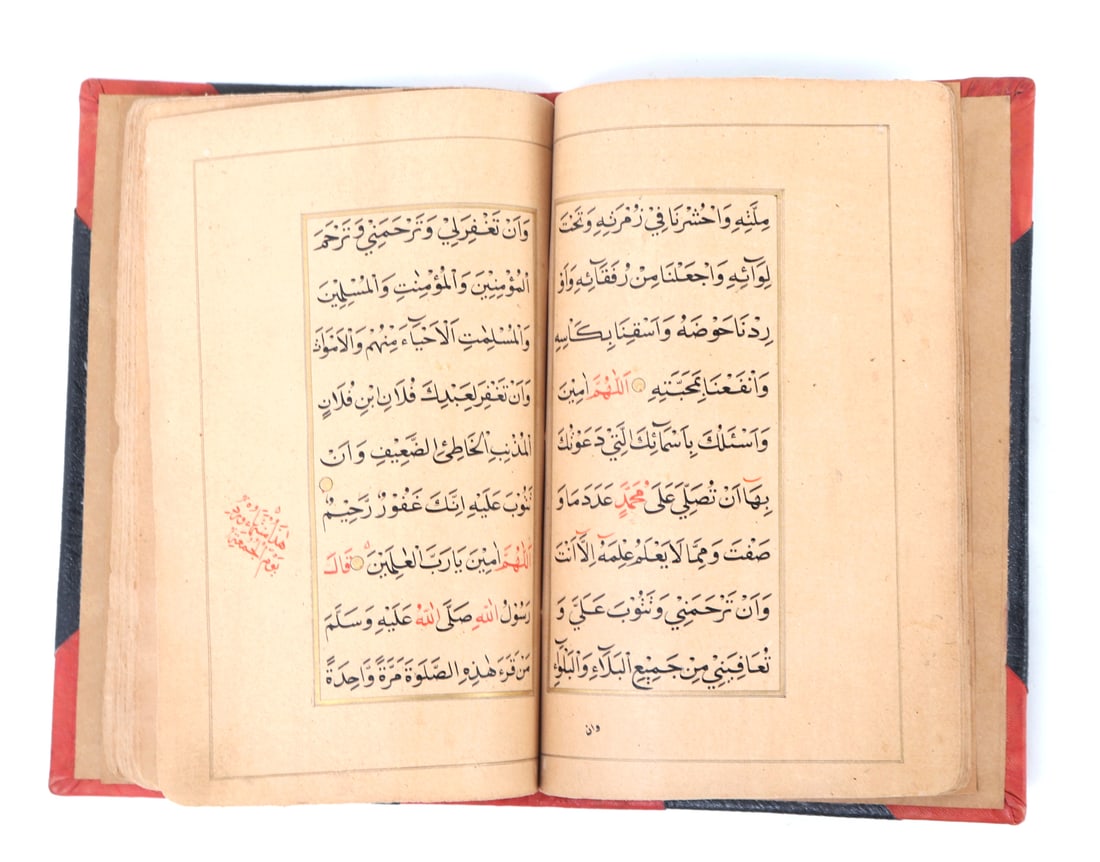 مِلَّتِهِ وَاحْشُرْنَا فِيْ زُمْرَتِهِ وَتَحْتَ
لِوَآئِهِ وَاجْعَلْنَا مِنْ رُفَقَآئِهِ وَاَوْ
رِدْنَا حَوْضَهُ وَاَسْقِنَا بِكَاْسِهِ
وَانْفَعْنَا بِمَحَبَّتِهِ اَللّٰهُمَّ اٰمِيْنَ
وَاَسْئَلُكَ بِاَسْمَآئِكَ الَّتِيْ دَعَوْتُكَ
بِهَا اَنْ تُصَلِّيَ عَلٰى مُحَمَّدٍ عَدَدَ مَا وَ
صَفْتَ وَمِمَّا لَا يَعْلَمُ عِلْمَهُ اِلَّا اَنْتَ
وَاَنْ تَرْحَمَنِيْ وَتَتُوْبَ عَلَيَّ وَ
تُعَافِيَنِيْ مِنْ جَمِيْعِ الْبَلَآءِ وَالْبَلْوَآءِ
وان
وَاَنْ تَغْفِرَلِيْ وَتَرْحَمَنِيْ وَتَرْحَمَ
الْمُؤْمِنِيْنَ وَالْمُؤْمِنٰتِ وَالْمُسْلِمِيْنَ
وَالْمُسْلِمٰتِ اَلْاَحْيَآءِ مِنْهُمْ وَالْاَمْوَاتِ
وَاَنْ تَغْفِرَ لِعَبْدِكَ فُلَانِ ابْنِ فُلَانٍ
الْمُذْنِبِ الْخَاطِئِ الضَّعِيْفِ وَاَنْ
تَتُوْبَ عَلَيْهِ اِنَّكَ غَفُوْرٌ رَّحِيْمٌ
اَللّٰهُمَّ اٰمِيْنَ يَا رَبَّ الْعٰلَمِيْنَ قَالَ
رَسُوْلُ اللّٰهِ صَلَّى اللّٰهُ عَلَيْهِ وَسَلَّمَ
مَنْ قَرَءَ هٰذِهِ الصَّلٰوةَ مَرَّةً وَّاحِدَةً
يَوْمِ الْجُمْعَةِ